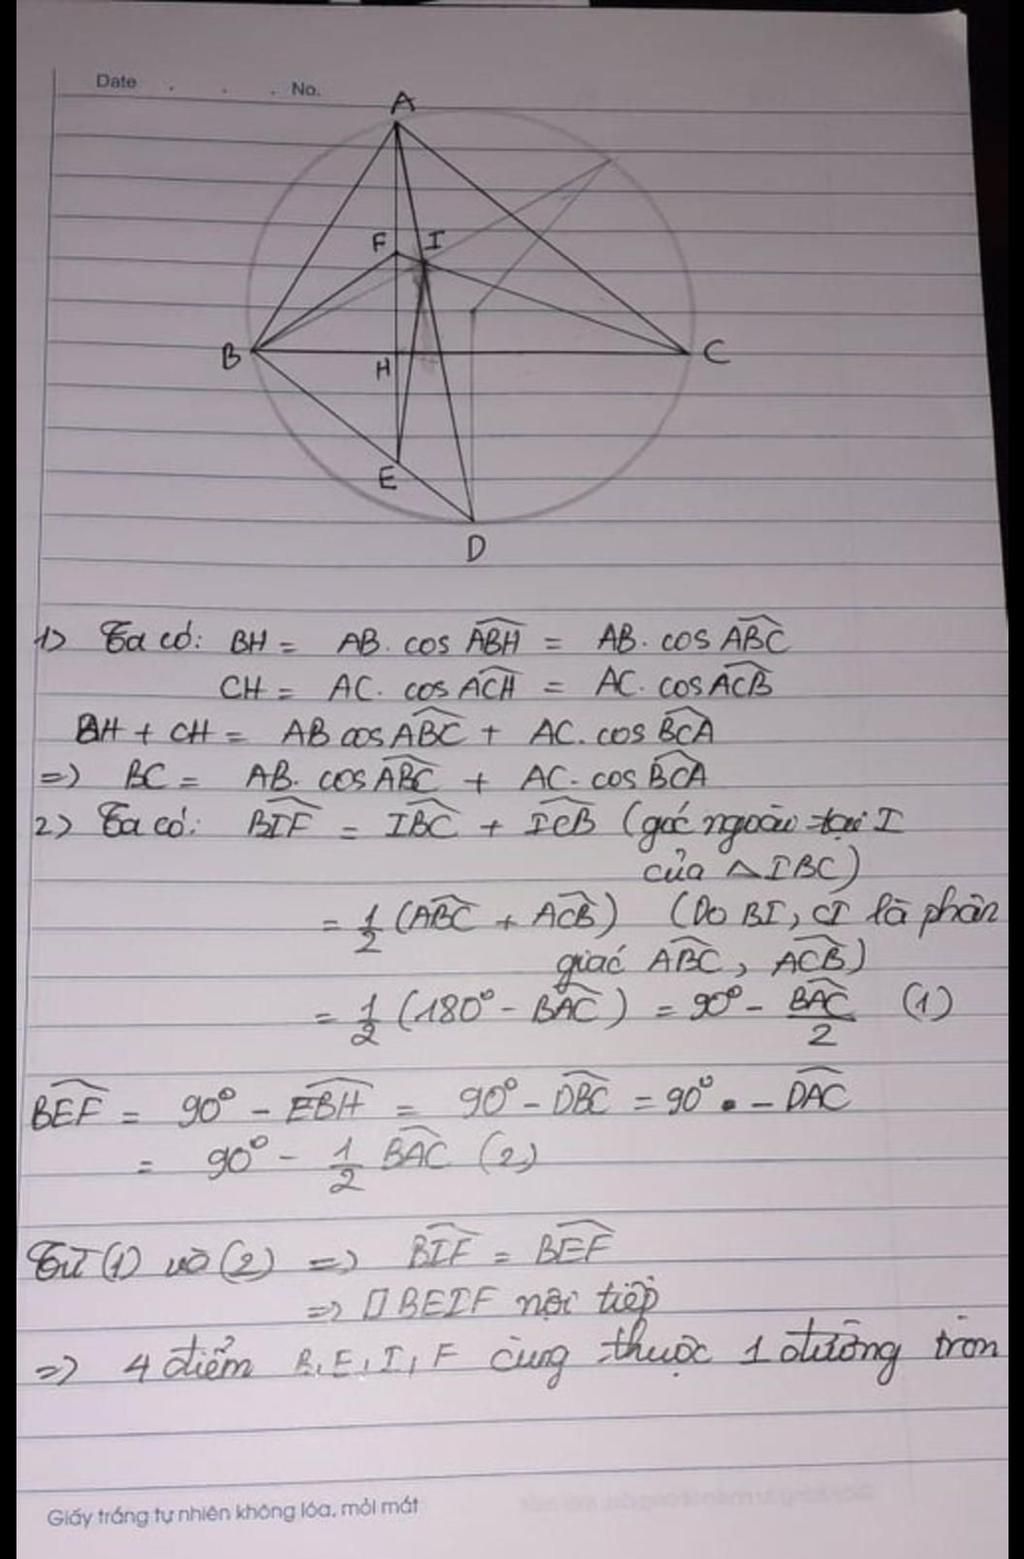 Date . . . No.
A
F I
B H C
E
D
1) Ta có: BH = AB. cos \widehat{ABH} = AB. cos \widehat{ABC}
CH = AC. cos \widehat{ACH} = AC. cos \widehat{ACB}
BH + CH = AB cos \widehat{ABC} + AC. cos \widehat{BCA}
=> BC = AB. cos \widehat{ABC} + AC. cos \widehat{BCA}
2) Ta có: \widehat{BIF} = \widehat{IBC} + \widehat{ICB} (góc ngoài tại I
của △IBC)
= \frac{1}{2} (\widehat{ABC} + \widehat{ACB}) (Do BI, CI là phân
giác \widehat{ABC}, \widehat{ACB})
= \frac{1}{2} (180° - \widehat{BAC}) = 90° - \frac{\widehat{BAC}}{2} (1)
\widehat{BEF} = 90° - \widehat{EBH} = 90° - \widehat{DBC} = 90° - \widehat{DAC}
= 90° - \frac{1}{2} \widehat{BAC} (2)
Từ (1) và (2) => \widehat{BIF} = \widehat{BEF}
=> □BEIF nội tiếp
=> 4 điểm B, E, I, F cùng thuộc 1 đường tròn
Giấy trắng tự nhiên không lóa, mỏi mắt